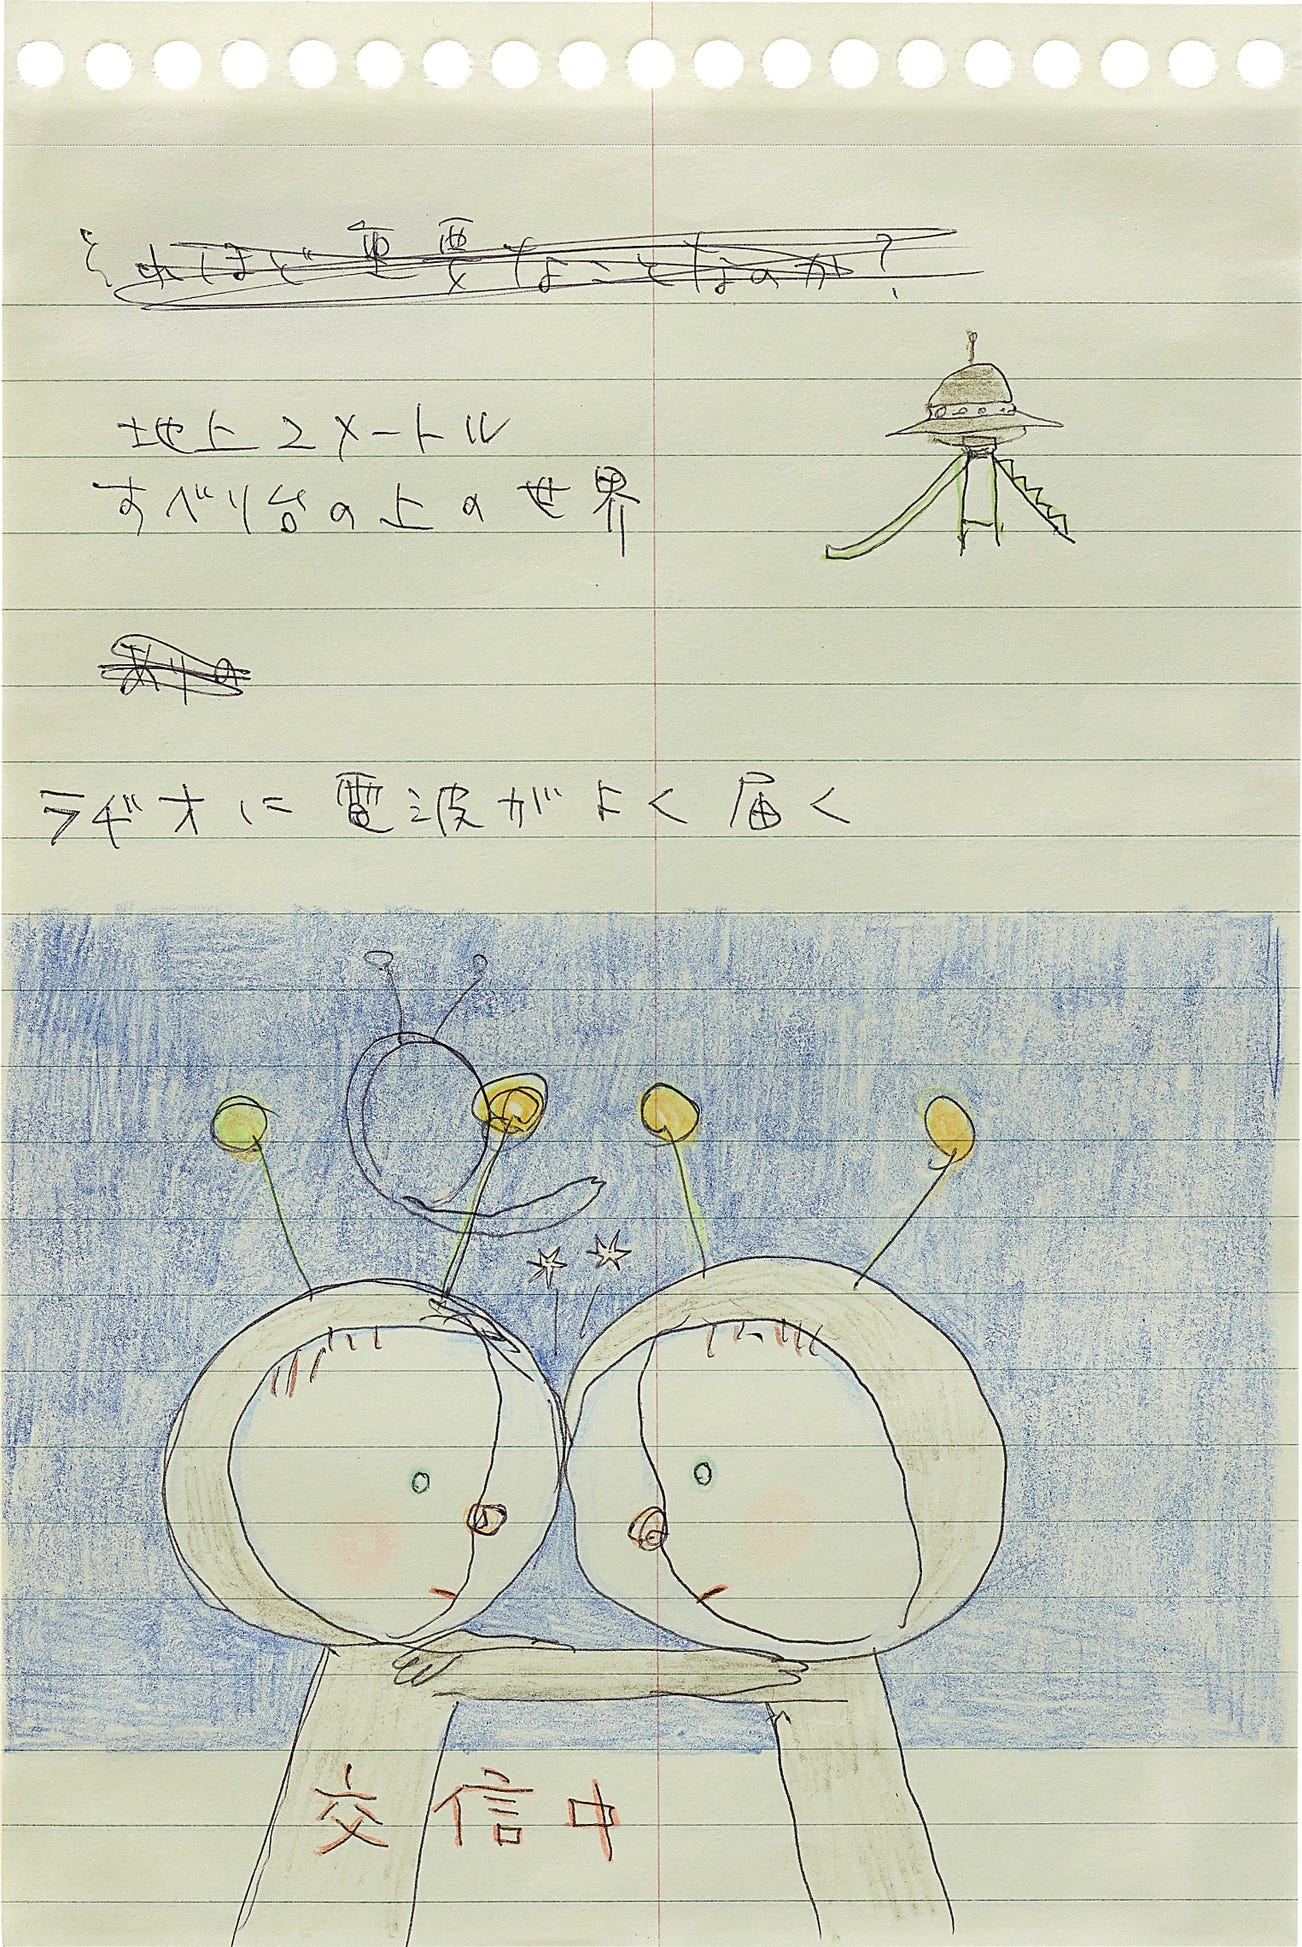 それほど重要なことなのか?
地上2メートル
すべり台の上の世界
ラヂオに電波がよく届く
交信中